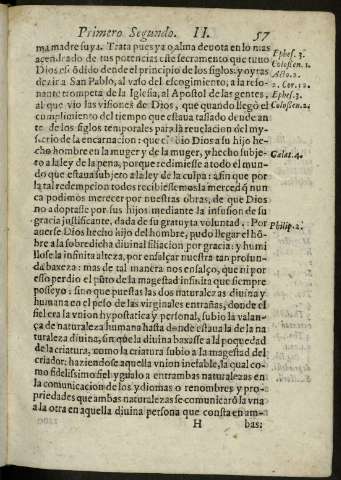 Primero Segundo. II. 57
ma madre suya. Trata pues ya o alma deuota en lo mas
acendrado de tus potencias este secramento que tuuo
Dios escōdido dende el principio de los siglos: y oy tras
de zir a San Pablo, al vaso del escogimiento; a la reso-
nante trompeta de la Iglesia, al Apostol de las gentes,
al que vio las visiones de Dios, que quando llegò el
cumplimiento del tiempo que estaua tassado dende an
te de los siglos temporales para la reuelacion del my-
sterio de la encarnacion: que embio Dios a su hijo he-
cho hombre en la muger y de la muger, y hecho subje-
to a la ley de la pena, porque redimiesse a todo el mun-
do que estaua subjeto a la ley de la culpa: a fin que por
la tal redempcion todos recibiessemos la merced q̃ nun
ca podimos merecer por nuestras obras, de que Dios
nos adoptasse por sus hijos mediante la infusion de su
gracia justificante, dada de su gratuyta voluntad. Por
auerse Dios hecho hijo del hombre, pudo llegar el hō-
bre a la sobredicha diuinal filiacion por gracia: y humi
llose la infinita alteza, por ensalçar nuestra tan profun-
da baxeza: mas de tal manera nos ensalço, que ni por
esso perdio el pũto de la magestad infinita que siempre
posseyo: sino que puestas las dos naturalezas diuina y
humana en el peso de las virginales entrañas, donde el
fiel era la vnion hypostatica y personal, subio la valan-
ça de naturaleza humana hasta donde estaua la de la na
turaleza diuina, sin que la diuina baxasse a la poquedad
de la criatura, como la criatura subio a la magestad del
criador: haziendose aquella vnion inefable, la qual co-
mo fidelissimo fiel ygualo a entrambas naturalezas en
la comunicacion de los ydiomas o renombres y pro-
priedades que ambas naturalezas se comunicarō la vna
a la otra en aquella diuina persona que consta en am-
H bas:
Ephes. 3.
Colossen. 1.
Acto. 2.
2. Cor. 12.
Ephes. 3.
Colossen. 2.
Galat. 4.
Philip. 2.